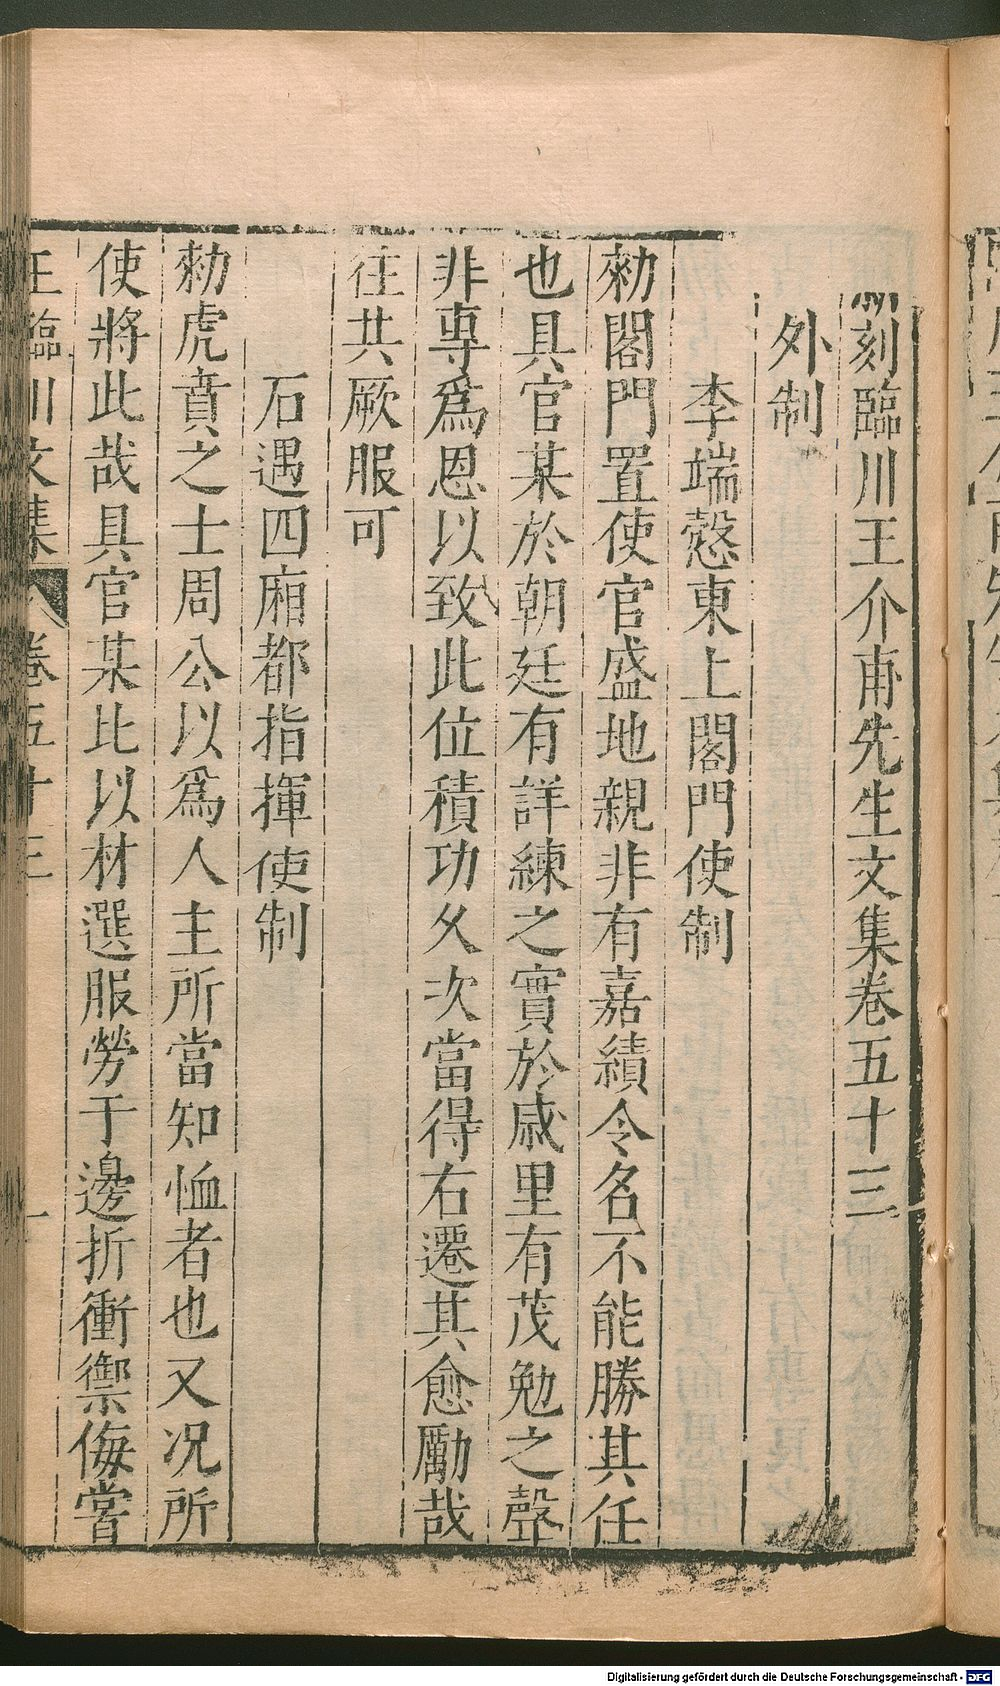 刻臨川王介甫先生文集卷五十三
外制
李端慤東上閤門使制
勑閤門置使官盛地親非有嘉績令名不能勝其任
也具官某於朝廷有詳練之實於戚里有茂勉之聲
非專爲恩以致此位積功久次當得右遷其愈勵哉
往共厥服可
石遇四廂都指揮使制
勑虎賁之士周公以爲人主所當知恤者也又况所
使將此哉具官某比以材選服勞于邊折衝禦侮嘗
王臨川文集 卷五十三 一
Digitalisierung gefördert durch die Deutsche Forschungsgemeinschaft - DFG